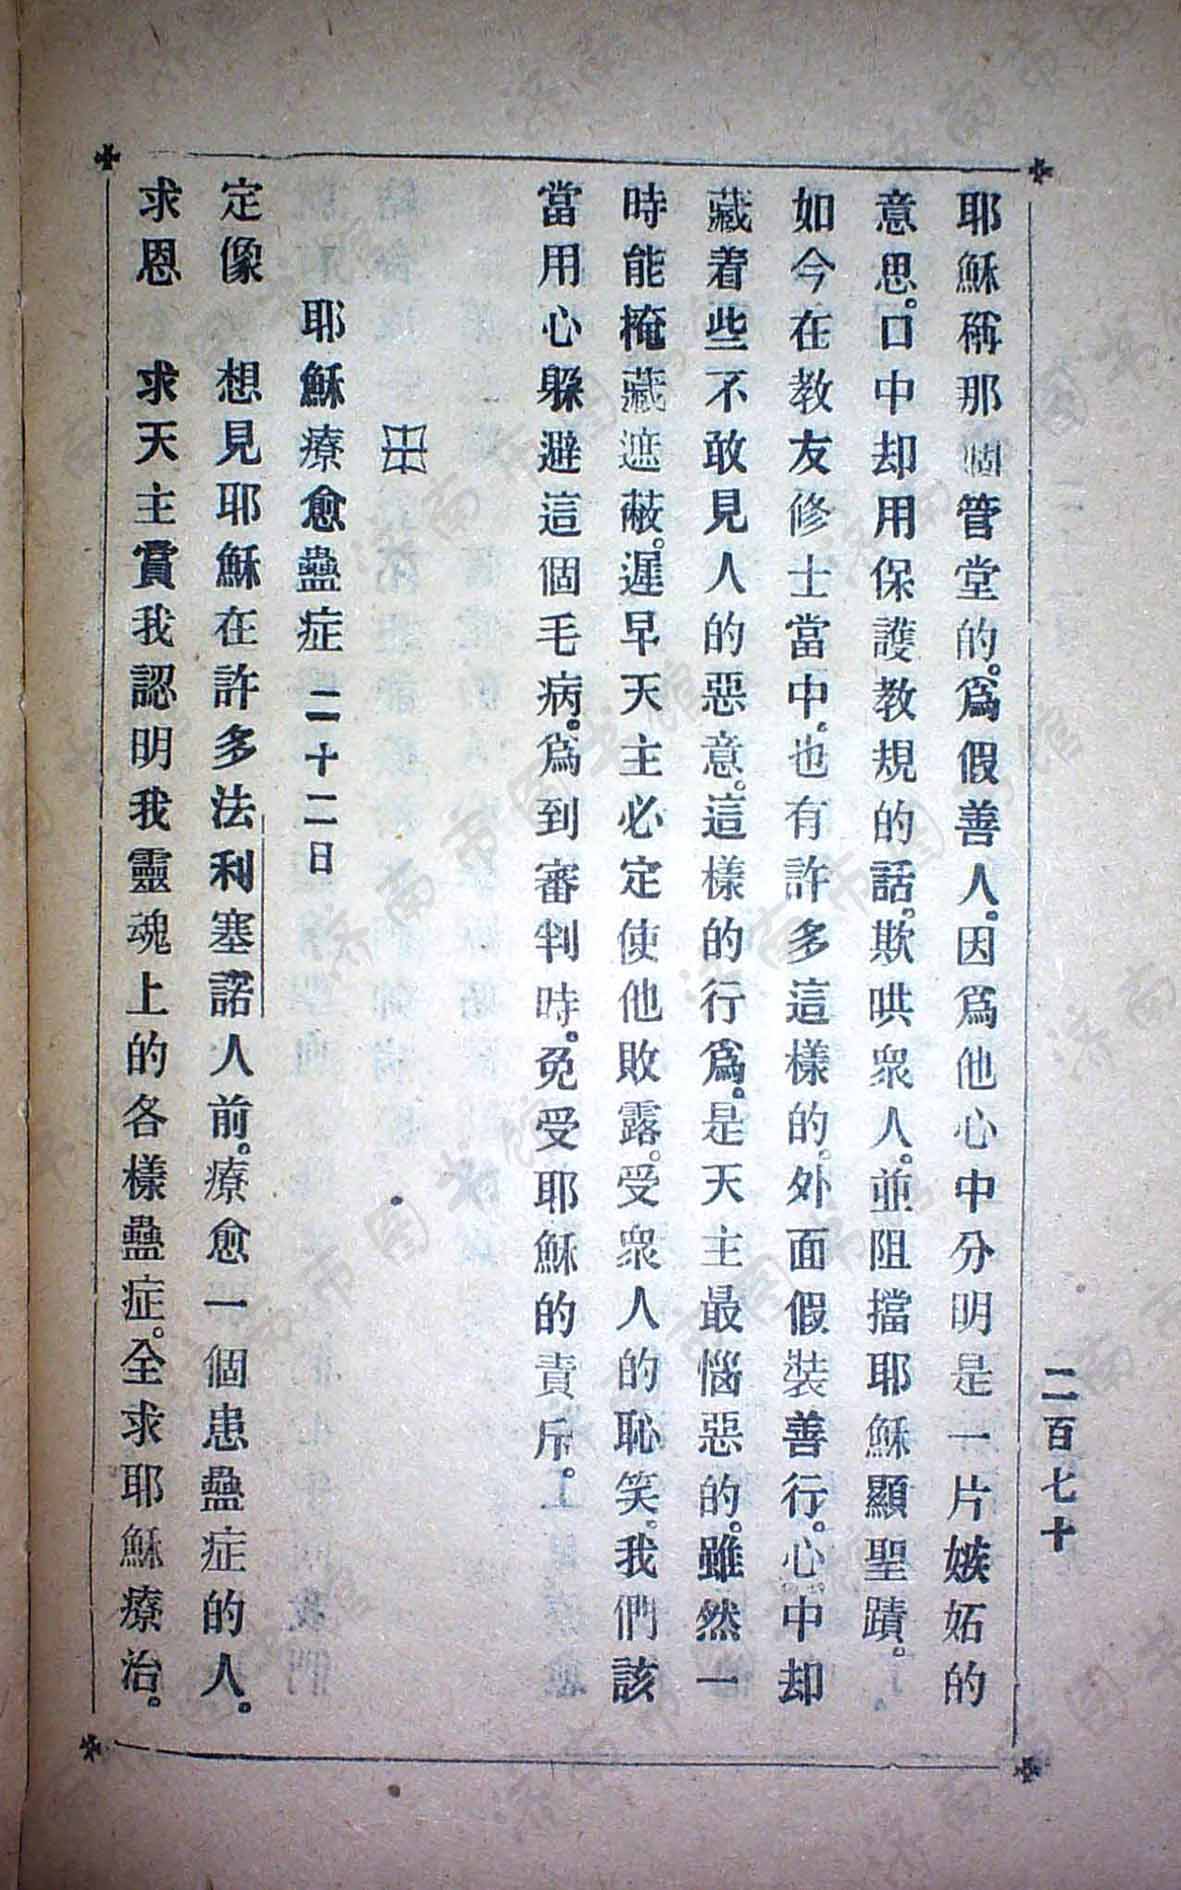 二百七十
耶穌稱那個管堂的。爲假善人。因爲他心中分明是一片嫉妬的
意思。口中却用保護教規的話。欺哄衆人。並阻擋耶穌顯聖蹟。
如今在教友修士當中。也有許多這樣的。外面假裝善行。心中却
藏着些不敢見人的惡意。這樣的行爲。是天主最惱惡的。雖然一
時能掩藏遮蔽。遲早天主必定使他敗露。受衆人的恥笑。我們該
當用心躲避這個毛病。爲到審判時。免受耶穌的責斥。
耶穌療愈蠱症 二十二日
定像 想見耶穌在許多法利塞諾人前。療愈一個患蠱症的人。
求恩 求天主賞我認明我靈魂上的各樣蠱症。全求耶穌療治。
济南市图书馆